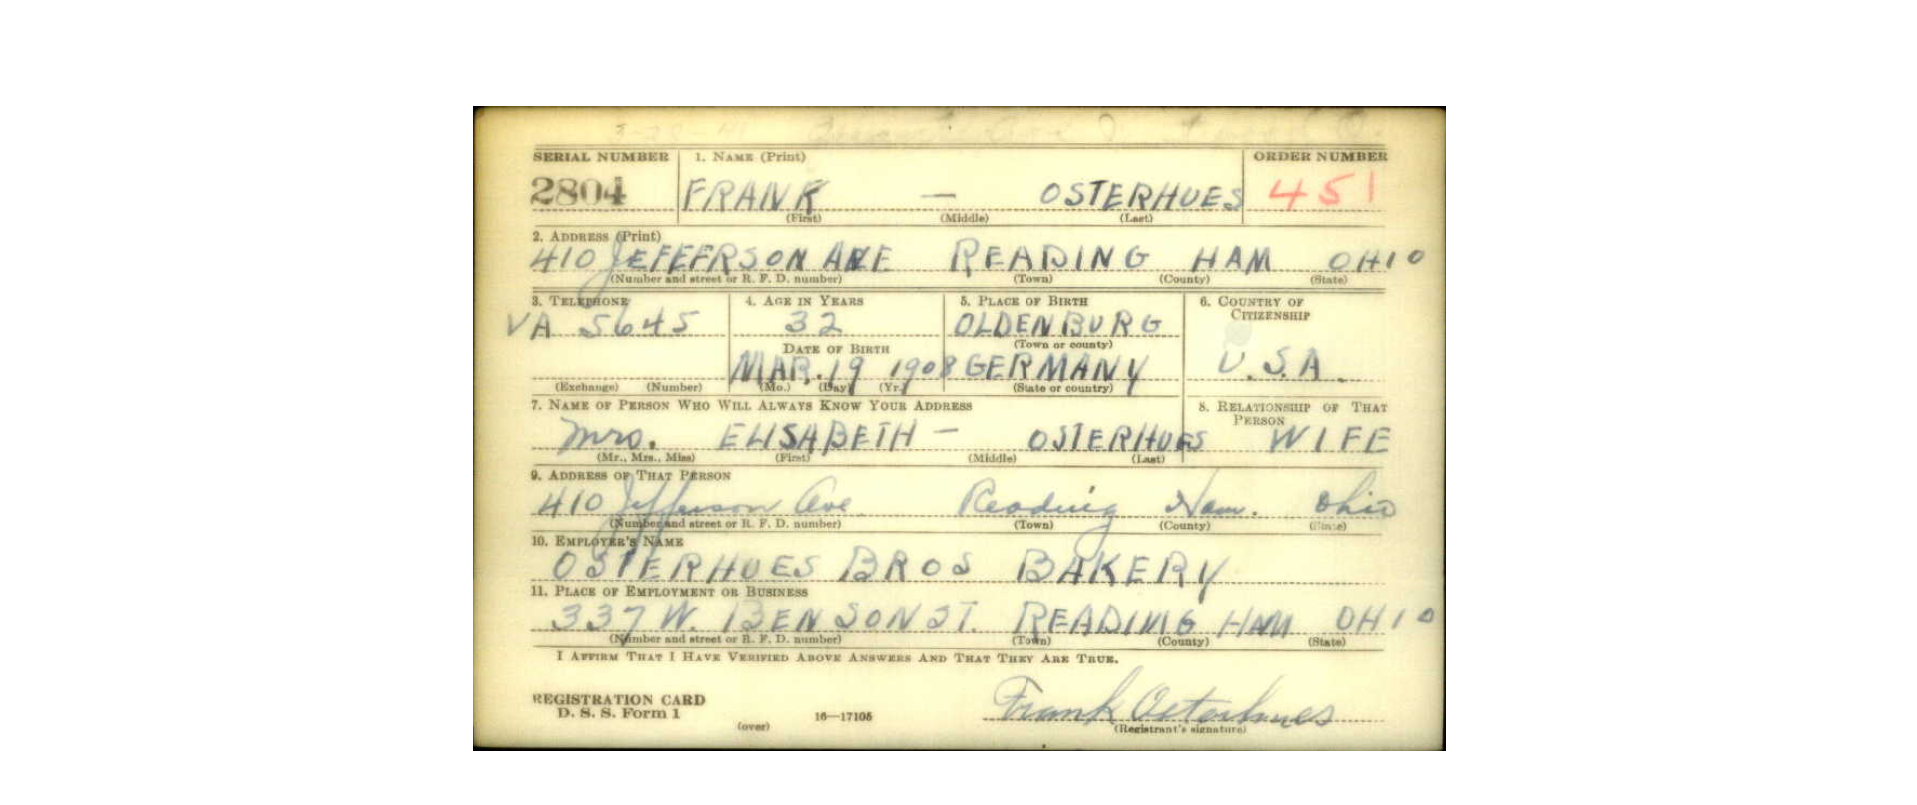 SERIAL NUMBER 1. NAME (Print) ORDER NUMBER
2804 FRANK — OSTERHUES 451
(First) (Middle) (Last)
2. ADDRESS (Print)
410 JEFEFRSON AVE READING HAM OHIO
(Number and street or R. F. D. number) (Town) (County) (State)
3. TELEPHONE 4. AGE IN YEARS 5. PLACE OF BIRTH 6. COUNTRY OF
CITIZENSHIP
VA 5645 32 OLDENBURG
(Town or county)
DATE OF BIRTH
MAR. 19 1908 GERMANY U.S.A.
(Exchange) (Number) (Mo.) (Day) (Yr.) (State or country)
7. NAME OF PERSON WHO WILL ALWAYS KNOW YOUR ADDRESS 8. RELATIONSHIP OF THAT
PERSON
Mrs. ELISABETH — OSTERHUES WIFE
(Mr., Mrs., Miss) (First) (Middle) (Last)
9. ADDRESS OF THAT PERSON
410 Jefferson Ave Reading Ham. Ohio
(Number and street or R. F. D. number) (Town) (County) (State)
10. EMPLOYER'S NAME
OSTERHUES BROS BAKERY
11. PLACE OF EMPLOYMENT OR BUSINESS
337 W. BENSON ST. READING HAM OHIO
(Number and street or R. F. D. number) (Town) (County) (State)
I AFFIRM THAT I HAVE VERIFIED ABOVE ANSWERS AND THAT THEY ARE TRUE.
REGISTRATION CARD
D. S. S. Form 1 16—17105 Frank Osterhues
(over) (Registrant's signature)